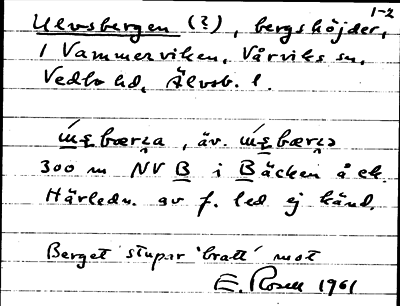 1-2
Ulvsbergen (?), bergshöjder,
i Vammerviken, Vårviks sn,
Vedbo hd, Älvsb. l.
300 m NV B i Bäcken å ek.
Härledn. av f. led ej känd.
Berget stupar 'bratt' mot
E. Rosell 1961